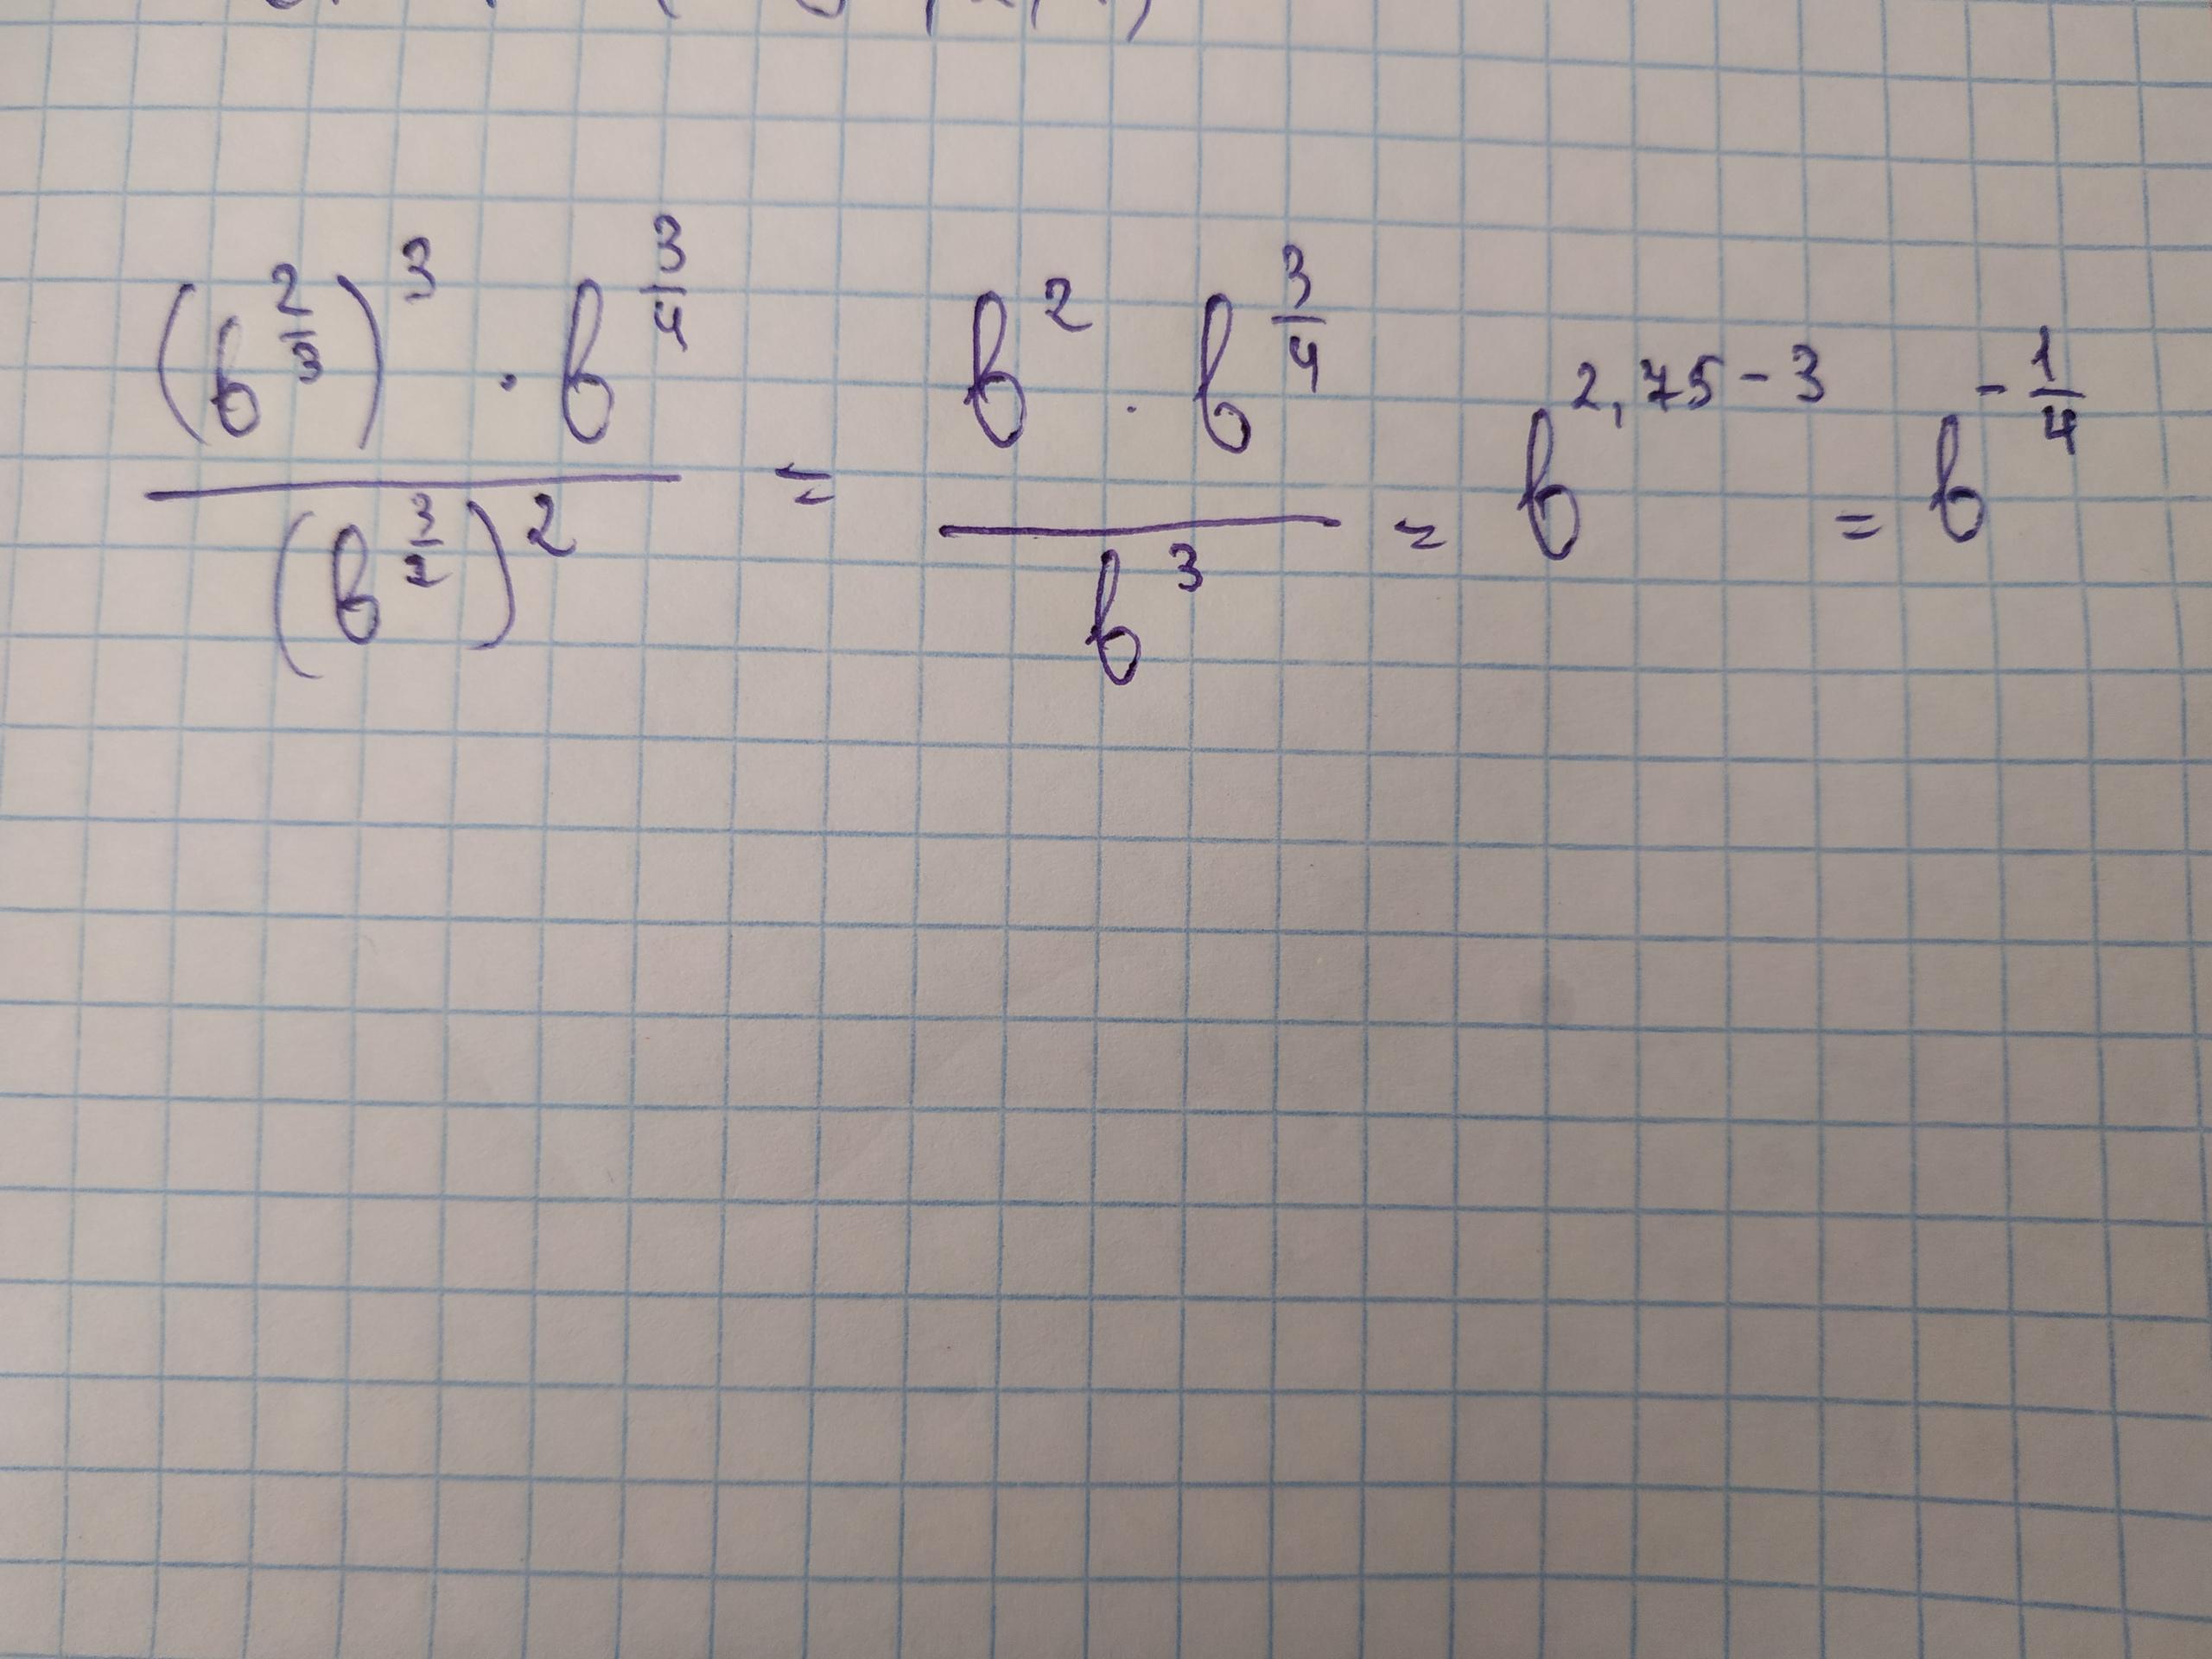 (b^{\frac{2}{3}})^3 · b^{\frac{3}{4}} / (b^{\frac{3}{2}})^2 = b^2 · b^{\frac{3}{4}} / b^3 = b^{2,75-3} = b^{-\frac{1}{4}}